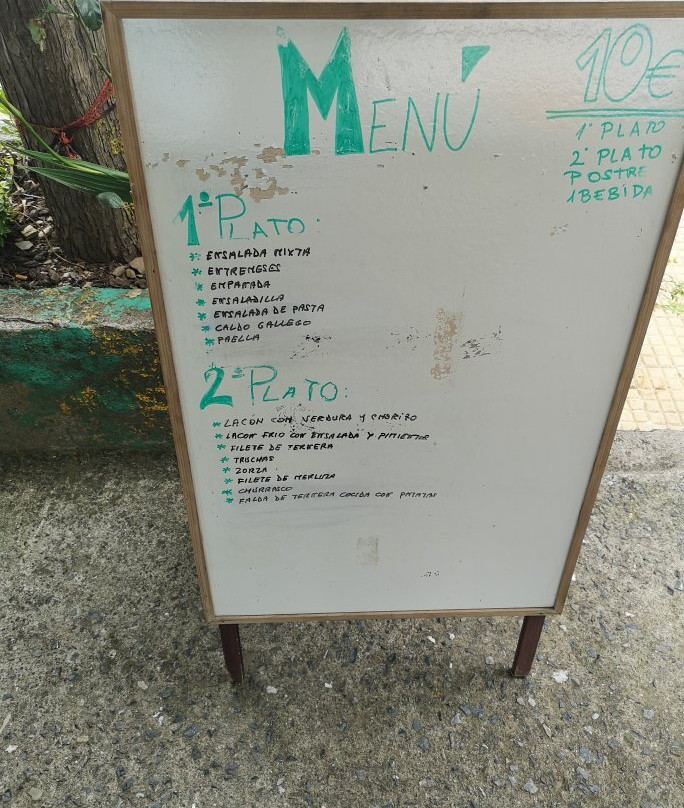 MENÚ
10€
1º PLATO
2º PLATO
POSTRE
1 BEBIDA
1º PLATO:
* ENSALADA MIXTA
* ENTREMESES
* EMPANADA
* ENSALADILLA
* ENSALADA DE PASTA
* CALDO GALLEGO
* PAELLA
2º PLATO:
* LACÓN CON VERDURA Y CHORIZO
* LACON FRIO CON ENSALADA Y PIMIENTOS
* FILETE DE TERNERA
* TRUCHAS
* ZORZA
* FILETE DE MERLUZA
* CHURRASCO
* FALDA DE TERNERA COCIDA CON PATATAS